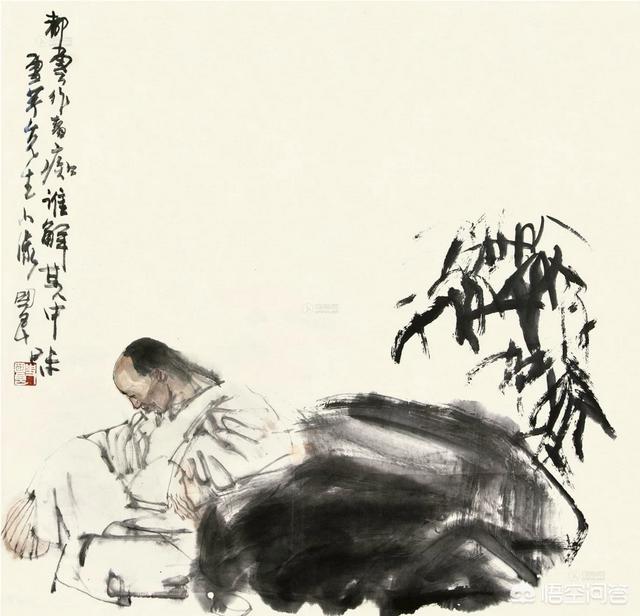 都云作者痴谁解其中味
雪芹先生小像 国
悟空问答